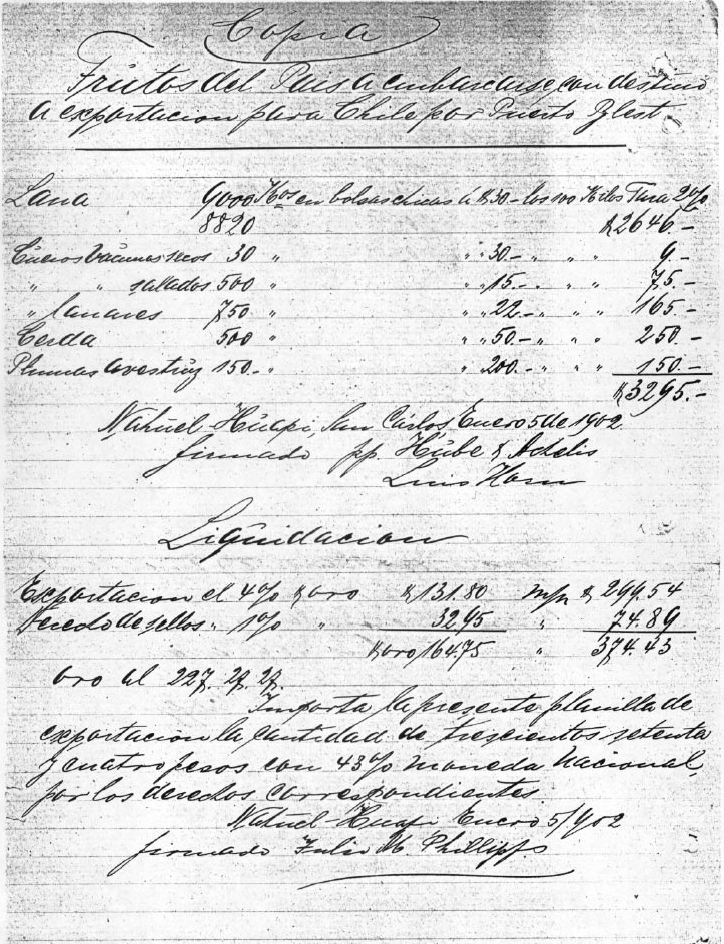 Copia
Frutos del Pais a embarcarse con destino
a exportacion para Chile por Puerto Blest
Lana 9000 Kos en bolsas chicas á $ 30.- los 100 Kilos Tara 2%
8820 $ 2646.-
Cueros Vacunos secos 30 " " " 30.- " " " 9.-
" " sallados 500 " " " 15.- " " " 75.-
" lanares 750 " " " 22.- " " " 165.-
Cerda 500 " " " 50.- " " " 250.-
Plumas Avestruz 150.- " " " 200.- " " " 150.-
$ 3295.-
Nahuel-Huapi, San Cárlos, Enero 5 de 1902
firmado pp. Hube & Achelis
Luis Horn
Liquidacion
Exportacion el 4% $ oro $ 131.80 m/n $ 299.54
Derecho de sellos " 1% " 3295 " 74.89
$ oro 164.75 " 374.43
oro al 227.27.27.
Importa la presente planilla de
exportacion la cantidad de trescientos setenta
y cuatro pesos con 43% moneda nacional,
por los derechos correspondientes
Nahuel-Huapi Enero 5/902
firmado Julio M. Phillipps